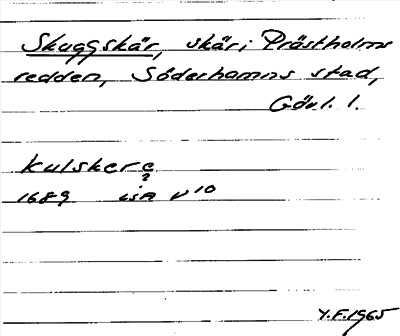 Skuggskär, skär i Prästholms
redden, Söderhamns stad,
Gävl. l.
Kulskere
?
1689 LSA V 10
Y.F. 1965